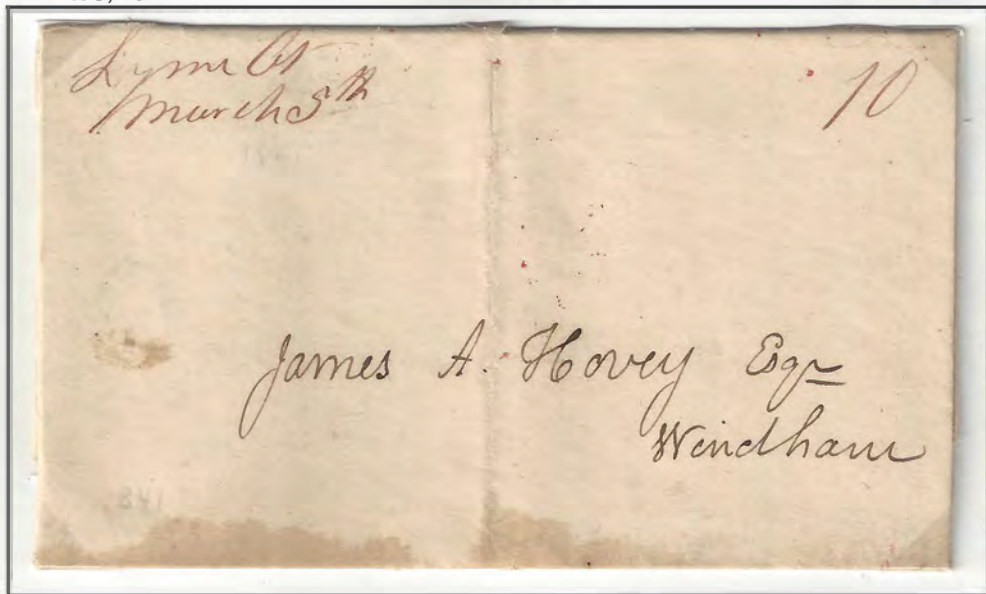 Lyme Ct
March 5th
10
James A. Hovey Esqr
Windham
1841